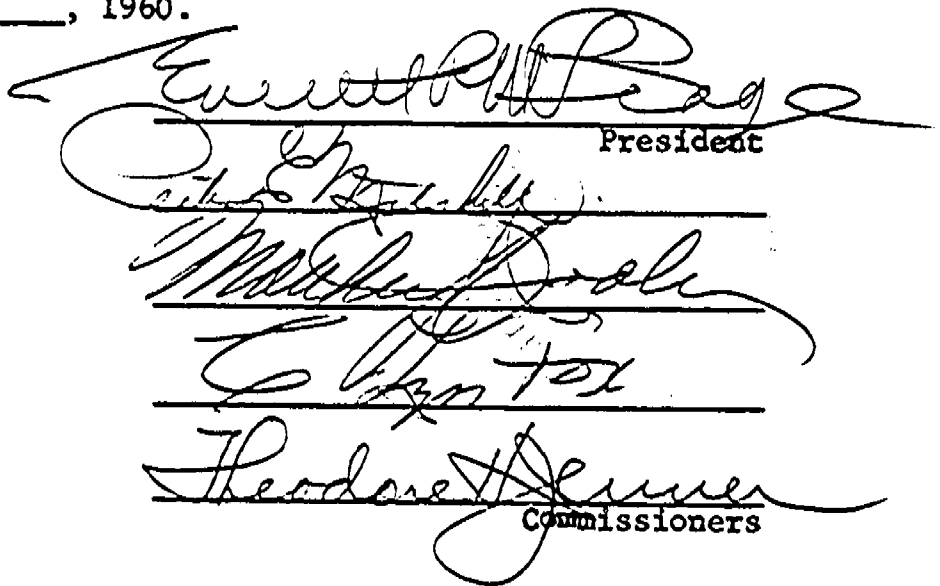 , 1960.
Everett C. McKeage
President
Peter E. Mitchell
Matthew J. Dooley
C. Lyn Fox
Theodore H. Jenner
Commissioners